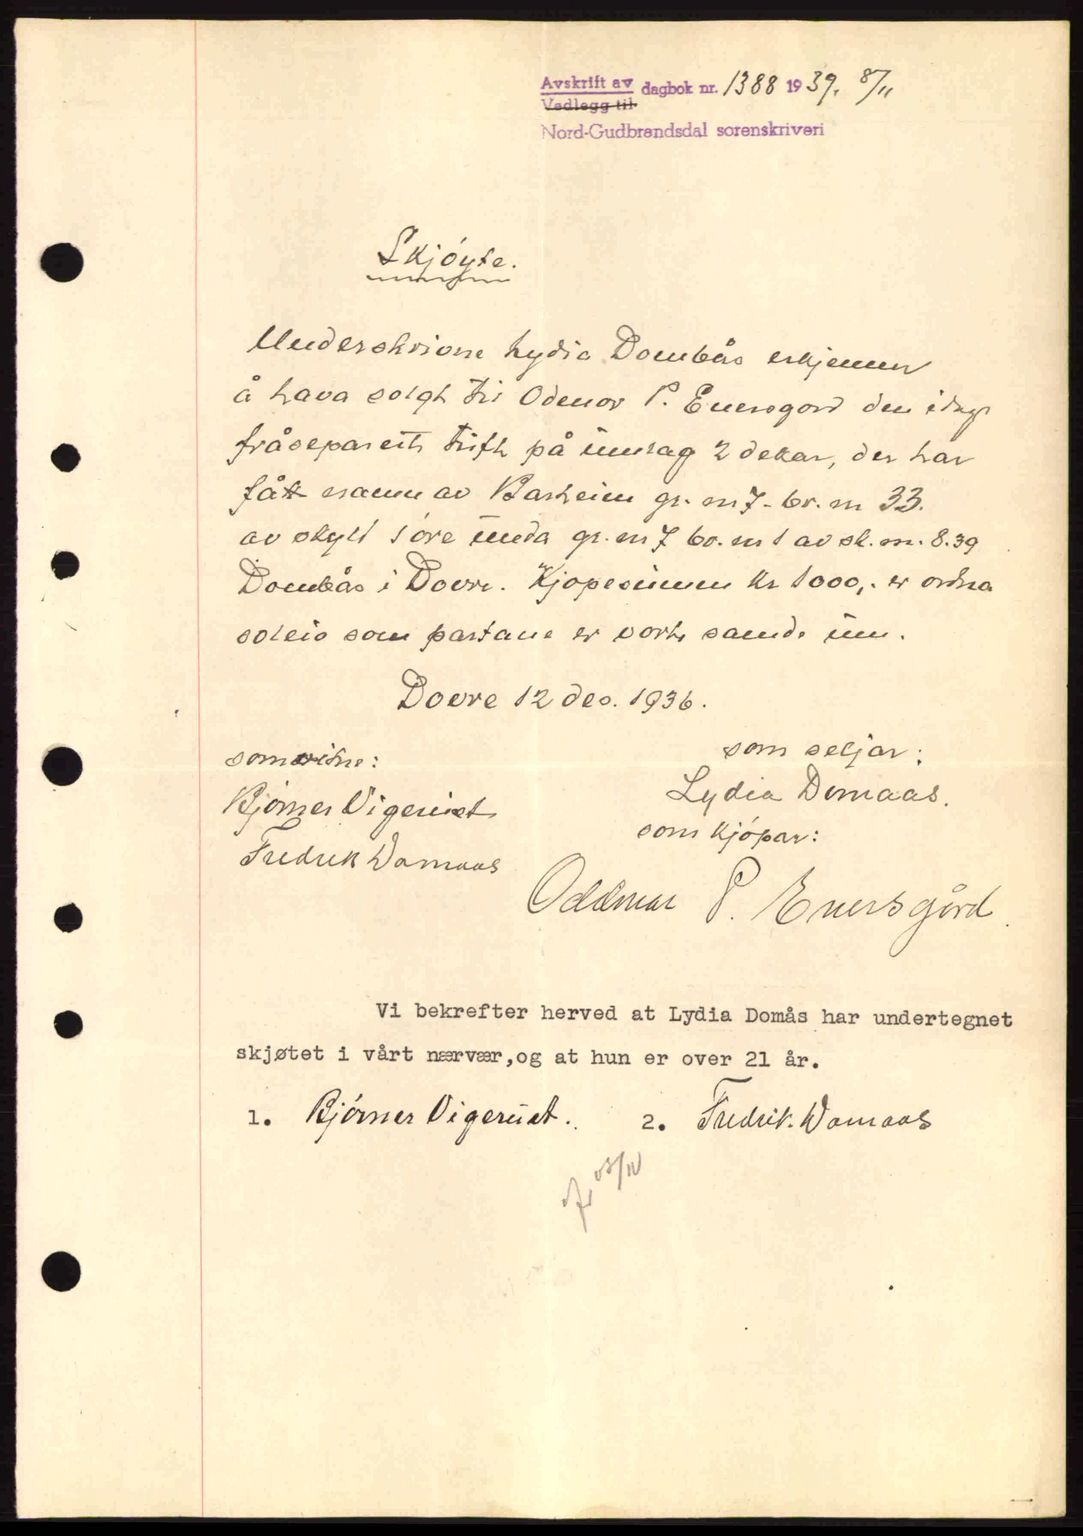 Avskrift av dagbok nr. 1388 1939, 8/11
Vedlegg til
Nord-Gudbrandsdal sorenskriveri
Skjöyte.
Underskrivne Lydia Dombås erkjenner
å hava solgt til Odmor P. Enersgord den idag
fråseparerte tuft på umlag 2 dekar, der har
fått namn av Barheim gr. nr 7 - br. nr 33.
av skyld 1 øre unda gr. nr 7 br. nr 1 av sk. m. 8.39
Dombås i Dovre. Kjøpesummen kr 1000,- er ordna
soleis som partane er vorte samde um.
Dovre 12 des. 1936.
som vitne:
som seljar:
Bjørner Vigerust
Lydia Domaas.
Fredrik Domaas
som kjöpar:
Oddmar P. Enersgård.
Vi bekrefter herved at Lydia Domås har undertegnet
skjøtet i vårt nærvær,og at hun er over 21 år.
1. Bjørner Vigerust. 2. Fredrik Domaas